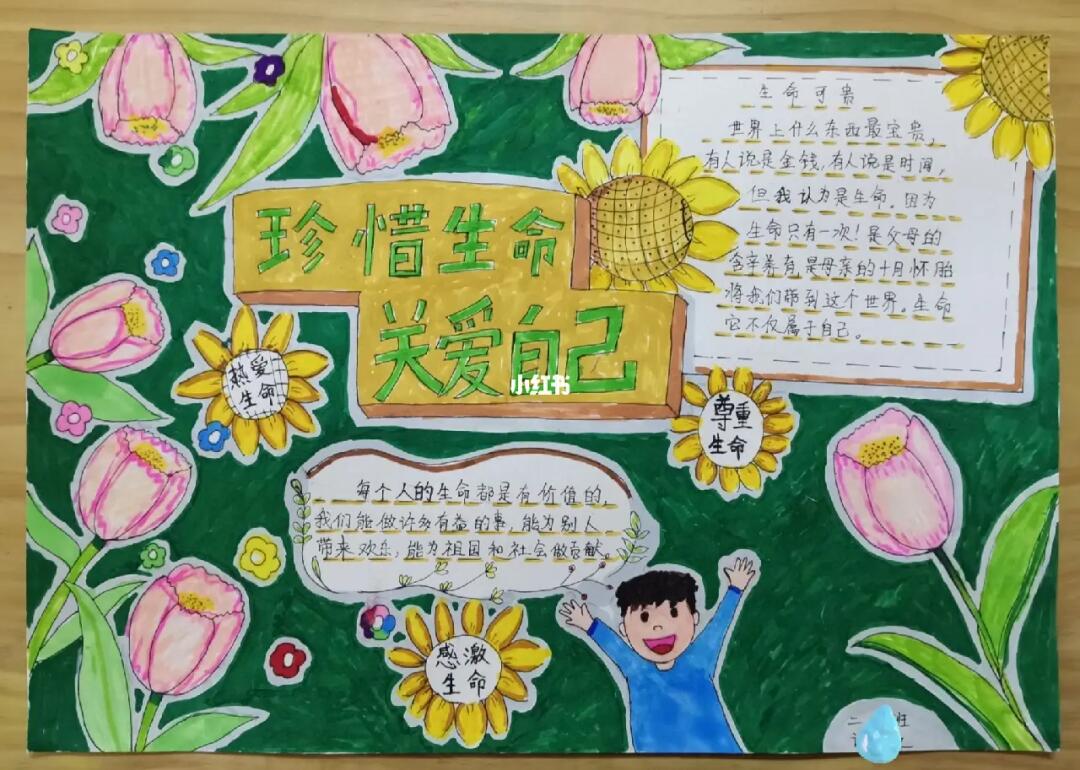 珍惜生命
关爱自己
小红书
生命可贵
世界上什么东西最宝贵，
有人说是金钱，有人说是时间，
但我认为是生命。因为
生命只有一次！是父母的
含辛养育，是母亲的十月怀胎
将我们带到这个世界。生命
它不仅属于自己。
热爱
生命
尊重
生命
每个人的生命都是有价值的，
我们能做许多有益的事，能为别人
带来欢乐，能为祖国和社会做贡献。
感激
生命
二 班